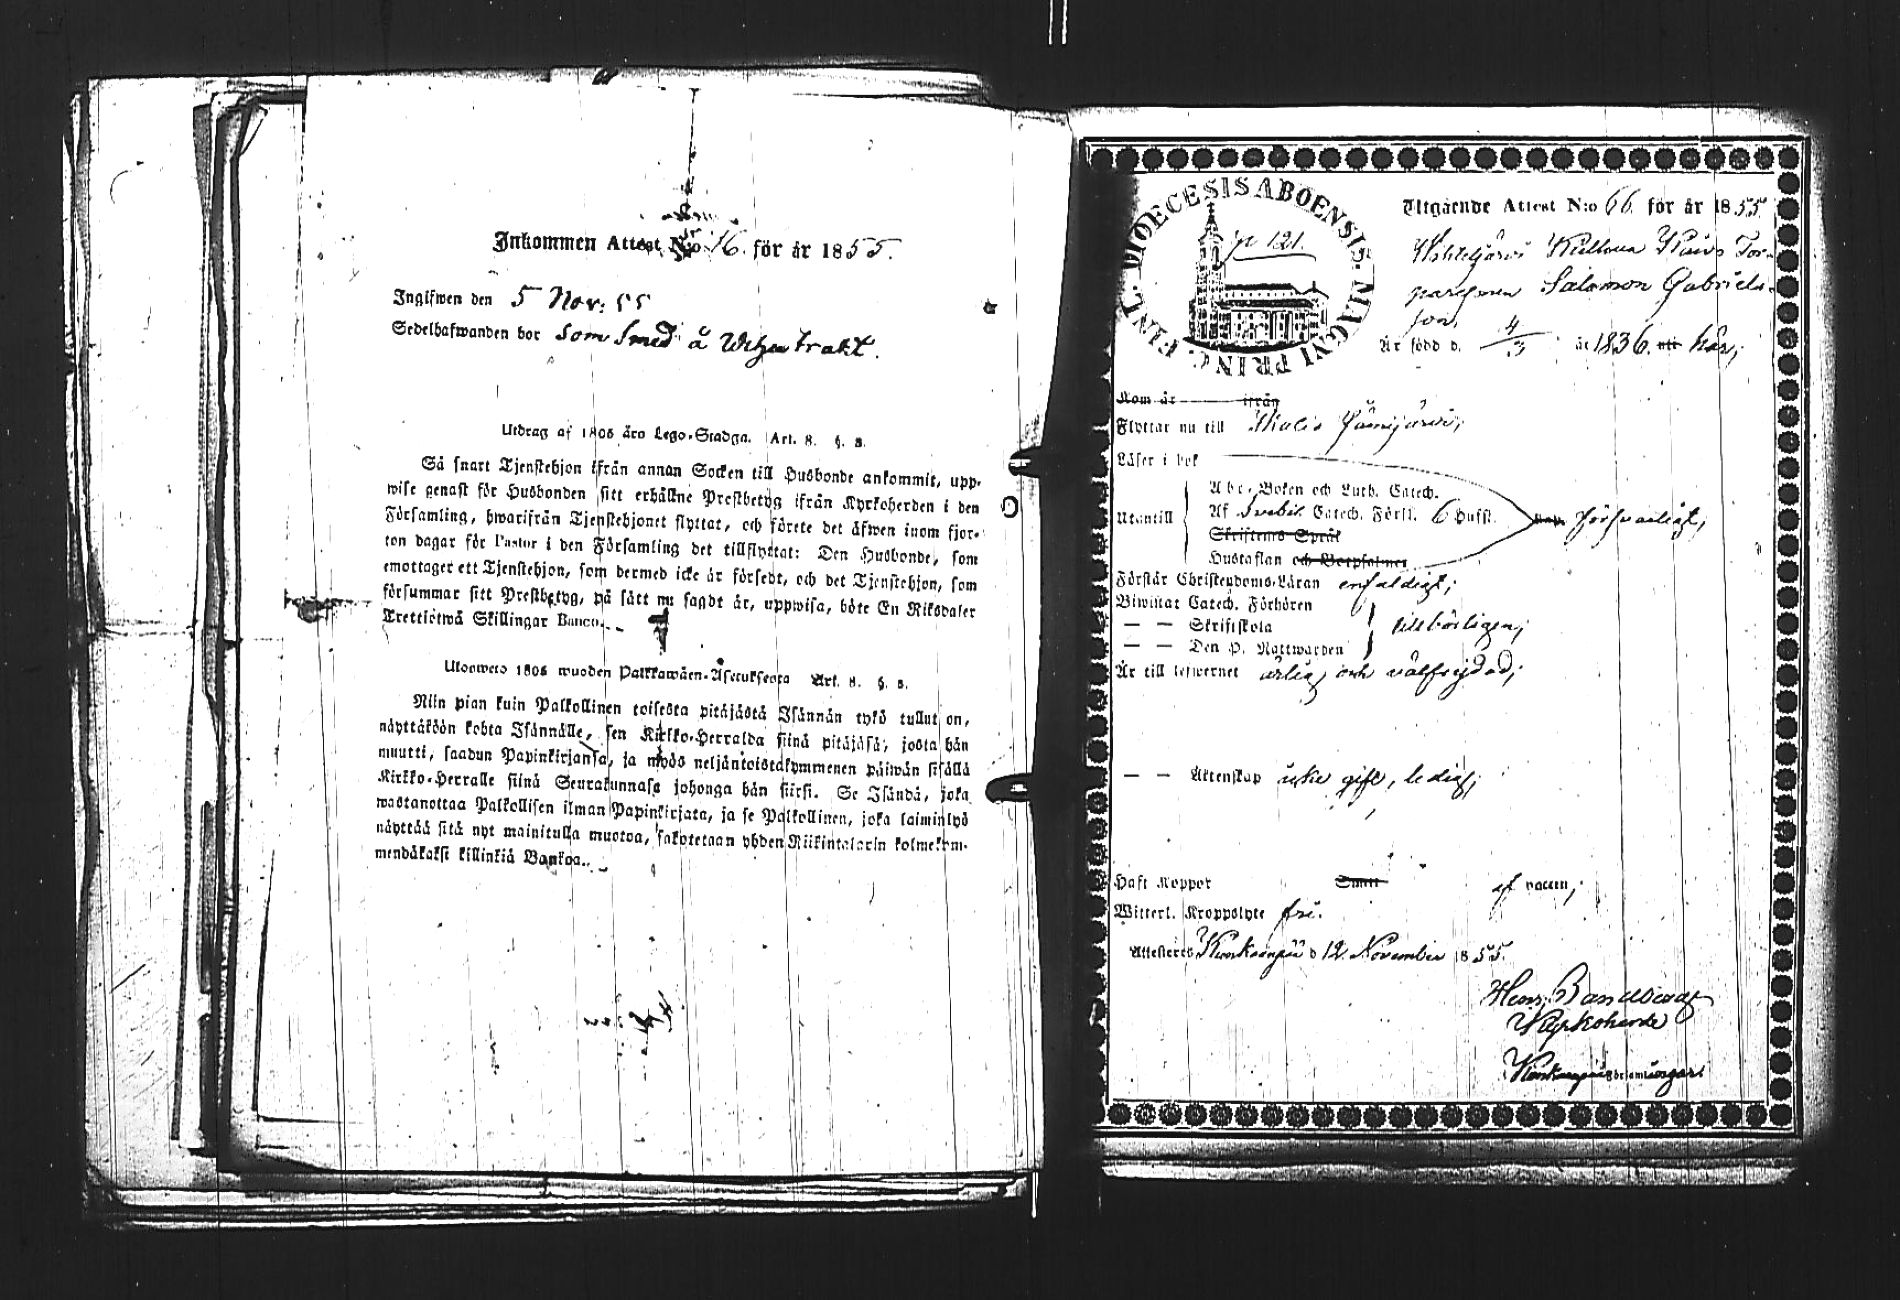 Inkommen Attest N:o 16. för år 1855.
Ingifwen den 5 Nov: 55
Sedelhafwanden bor som Smed å
Utdrag af 1805 års Lego-Stadga. Art. 8. §. 8.
Så snart Tjenstehjon ifrån annan Socken till Husbonde ankommit, upp-
wise genast för Husbonden sitt erhållne Prestbetyg ifrån Kyrkoherden i den
Församling, hwarifrån Tjenstehjonet flyttat, och förete det äfwen inom fjor-
ton dagar för Pastor i den Församling det tillflyttat: Den Husbonde, som
emottager ett Tjenstehjon, som dermed icke är försedt, och det Tjenstehjon, som
försummar sitt Prestbetyg, på sätt nu sagdt är, uppwisa, böte En Riksdaler
Trettiotwå Skillingar Banco.
Ulosweto 1805 wuoden Palkkawäen-Asetuksesta Art. 8. §. 8.
Niin pian kuin Palkollinen toisesta pitäjästä Isännän tykö tullut on,
näyttäköön kohta Isännälle, sen Kirkko-Herralda siinä pitäjäsä, josta hän
muutti, saadun Papinkirjansa, ja myös neljäntoistakymmenen päiwän sisällä
Kirkko-Herralle siinä Seurakunnasa johonga hän siirsi. Se Isändä, joka
wastanottaa Palkollisen ilman Papinkirjata, ja se Palkollinen, joka laiminlyö
näyttää sitä nyt mainitulla muotoa, sakotetaan yhden Riikintalarin kolmekym-
mendäkaksi killinkiä Bankoa.
DIOECESIS ABOENSIS. MAGNI PRINC. FINL.
p 121.
Utgående Attest N:o 66. för år 1855.
Salomon Gabriels-
son,
Är född d. 4/3 år 1836. här;
Kom år ifrån
Flyttar nu till Jämijärvi,
Läser i bok
Abc-Boken och Luth. Catech.
Utantill Af Svebil. Catech. Först. 6 Hufst. försvarligt;
Skriftens Språk
Hustaflan och Botpsalmer
Förstår Christendoms-Läran enfaldigt;
Biwistat Catech. Förhören
— — Skriftskola tillbörligen;
— — Den H. Nattwarden
Är till lefwernet ärlig och välfrejdad;
— — Äktenskap icke gift, ledig;
Haft Koppor Smitt af vaccin;
Witterl. Kroppslyte fri.
Attesteras Kankaanpää d 12. November 1855.
Kyrkoherde
Kankaanpää